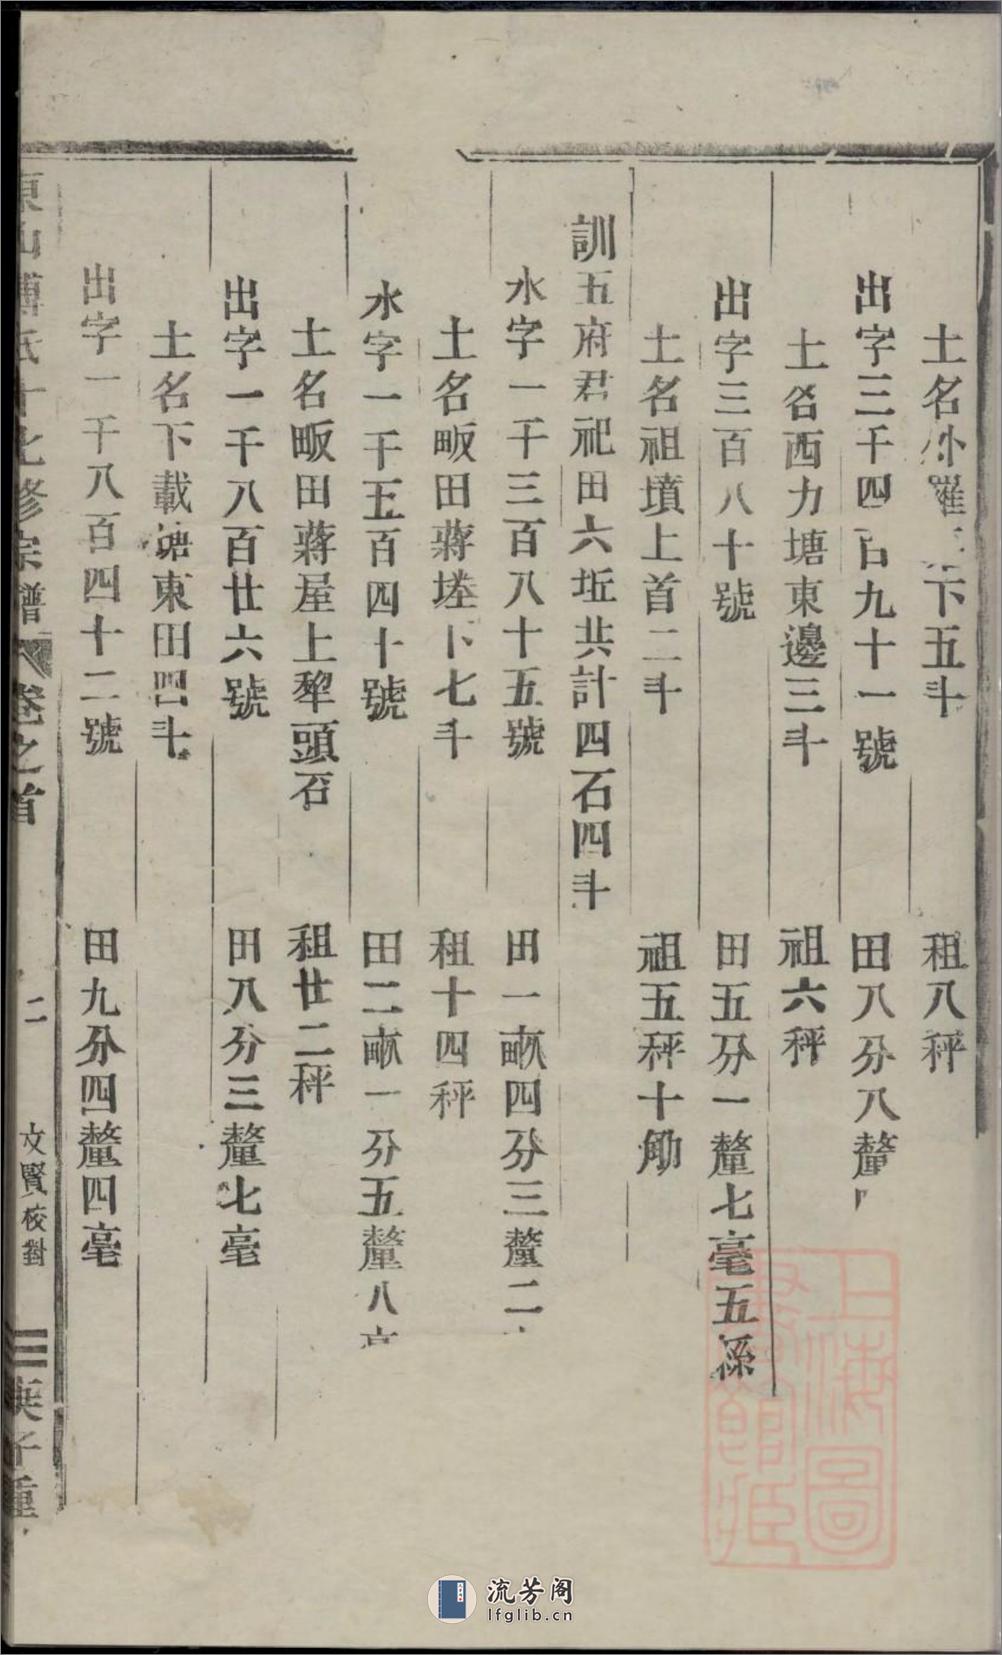 土名外羅 下五斗 租八秤
出字三千四百九十一號 田八分八釐
土名西力塘東邊三斗 祖六秤
出字三百八十號 田五分一釐七毫五
土名祖墳上首二斗 祖五秤十觔
訓五府君祀田六坵共計四石四斗
水字一千三百八十五號 田一畝四分三釐二
土名畈田蔣塋下七斗 租十四秤
水字一千五百四十號 田二畝一分五釐八毫
土名畈田蔣屋上犂頭石 租廿二秤
出字一千八百廿六號 田八分三釐七毫
土名下載塘東田四斗
出字一千八百四十二號 田九分四釐四毫
東山傅氏十七修宗譜 卷之首 二 文賢校對
上海圖書館藏
流芳阁
lfglib.cn